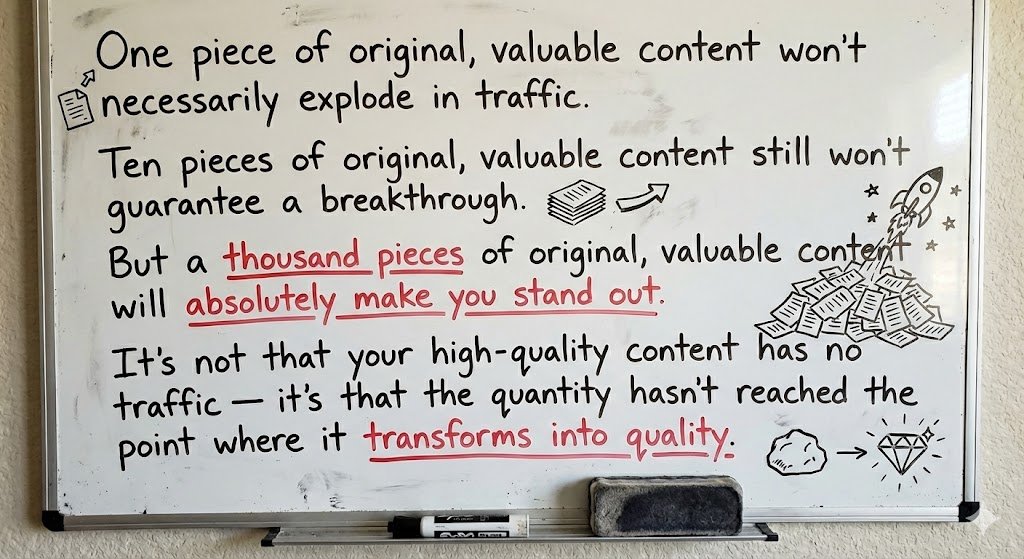 One piece of original, valuable content won't
necessarily explode in traffic.
Ten pieces of original, valuable content still won't
guarantee a breakthrough.
But a thousand pieces of original, valuable content
will absolutely make you stand out.
It's not that your high-quality content has no
traffic — it's that the quantity hasn't reached the
point where it transforms into quality.